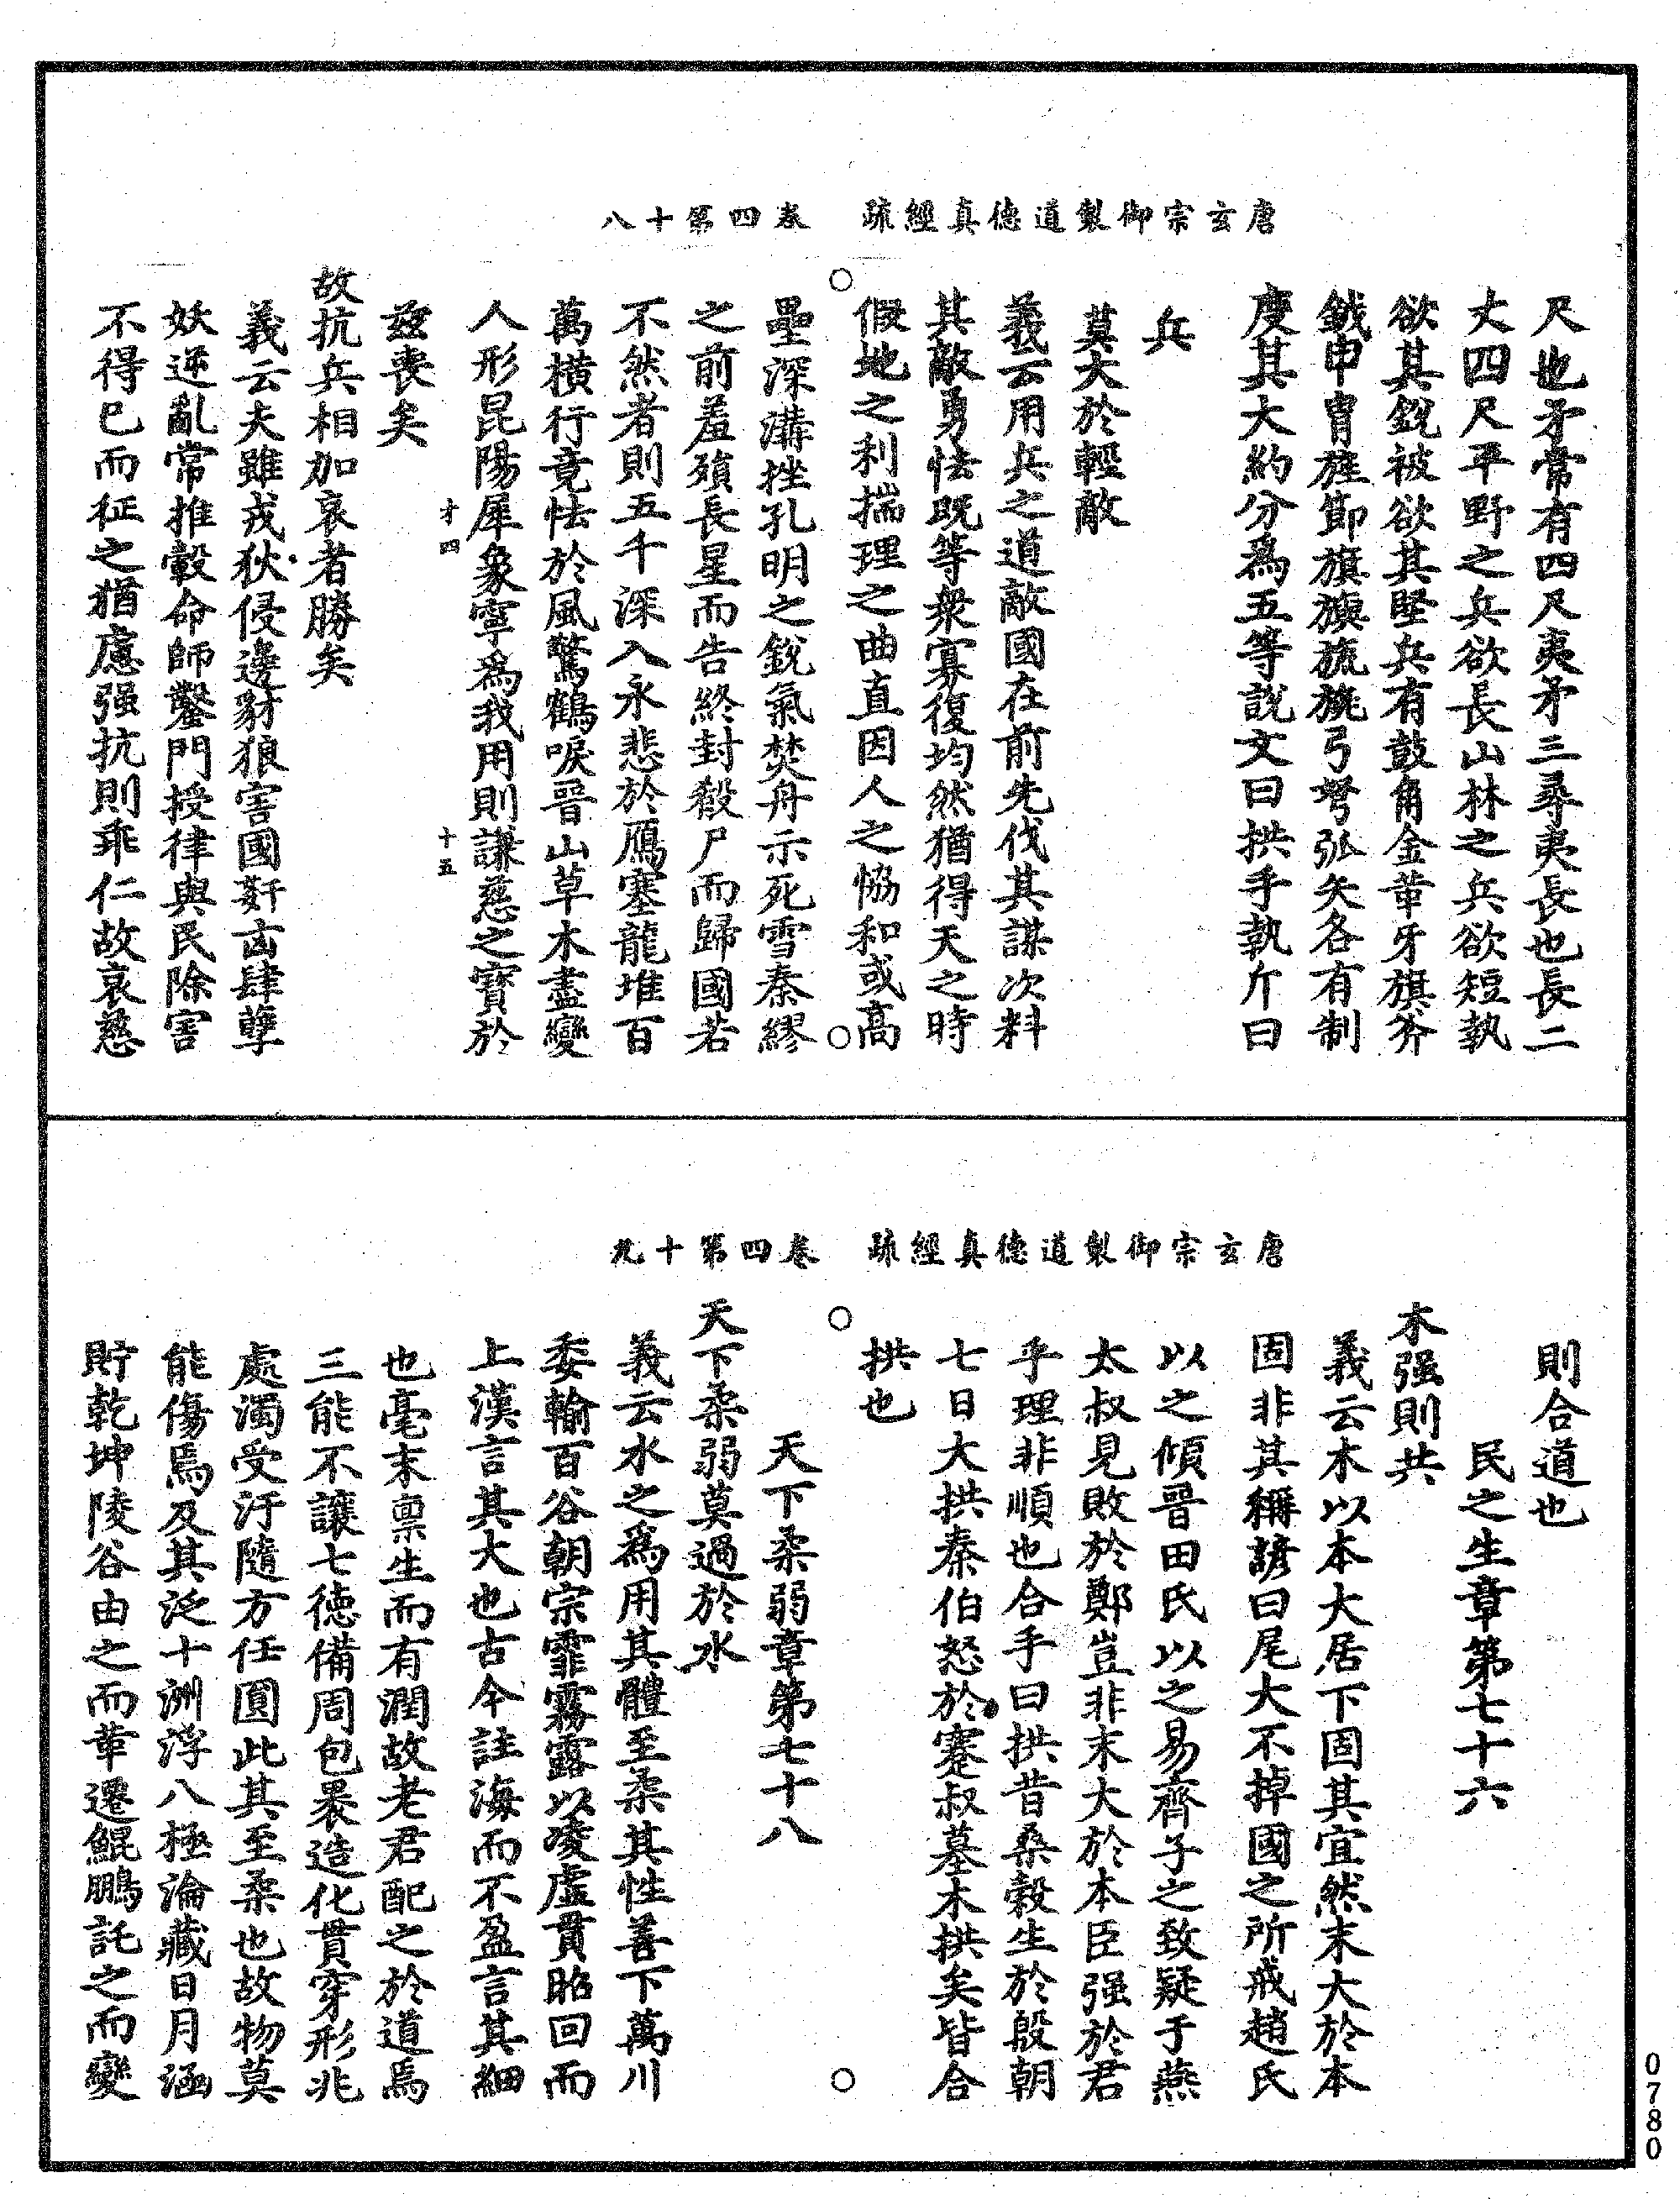 唐玄宗御製道德真經疏　卷四第十八
尺也矛常有四尺夷矛三尋夷長也長二
丈四尺平野之兵欲長山林之兵欲短執
欲其銳被欲其堅兵有鼓角金革牙旗斧
鉞甲冑旌節旗旟旒旐弓弩弧矢各有制
度其大約分為五等說文曰拱手執斤曰
兵
莫大於輕敵
義云用兵之道敵國在前先伐其謀次料
其敵勇怯既等衆寡復均然猶得天之時
假地之利揣理之曲直因人之恊和或高
壘深溝挫孔明之銳氣焚舟示死雪秦繆
之前羞殞長星而告終封殽尸而歸國若
不然者則五千深入永悲於鴈塞龍堆百
萬橫行竟怯於風驚鶴唳晉山草木盡變
人形昆陽犀象寧為我用則謙慈之寶於
茲喪矣
才四　十五
故抗兵相加哀者勝矣
義云夫雖戎狄侵邊豺狼害國姧凶肆孽
妖逆亂常推轂命師鑿門授律與民除害
不得已而征之猶慮强抗則乖仁故哀慈
唐玄宗御製道德真經疏　卷四第十九
則合道也
民之生章第七十六
木强則共
義云木以本大居下固其宜然末大於本
固非其稱諺曰尾大不掉國之所戒趙氏
以之傾晉田氏以之易齊子之致疑于燕
太叔見敗於鄭豈非末大於本臣强於君
乎理非順也合手曰拱昔桑穀生於殷朝
七日大拱秦伯怒於蹇叔墓木拱矣皆合
拱也
天下柔弱章第七十八
天下柔弱莫過於水
義云水之為用其體至柔其性善下萬川
委輸百谷朝宗霏霧露以凌虛貫昭回而
上漢言其大也古今註海而不盈言其細
也毫末禀生而有潤故老君配之於道焉
三能不讓七德備周包褁造化貫穿形兆
處濁受汙隨方任圓此其至柔也故物莫
能傷焉及其泛十洲浮八極淪藏日月涵
貯乾坤陵谷由之而革遷鯤鵬託之而變
0780